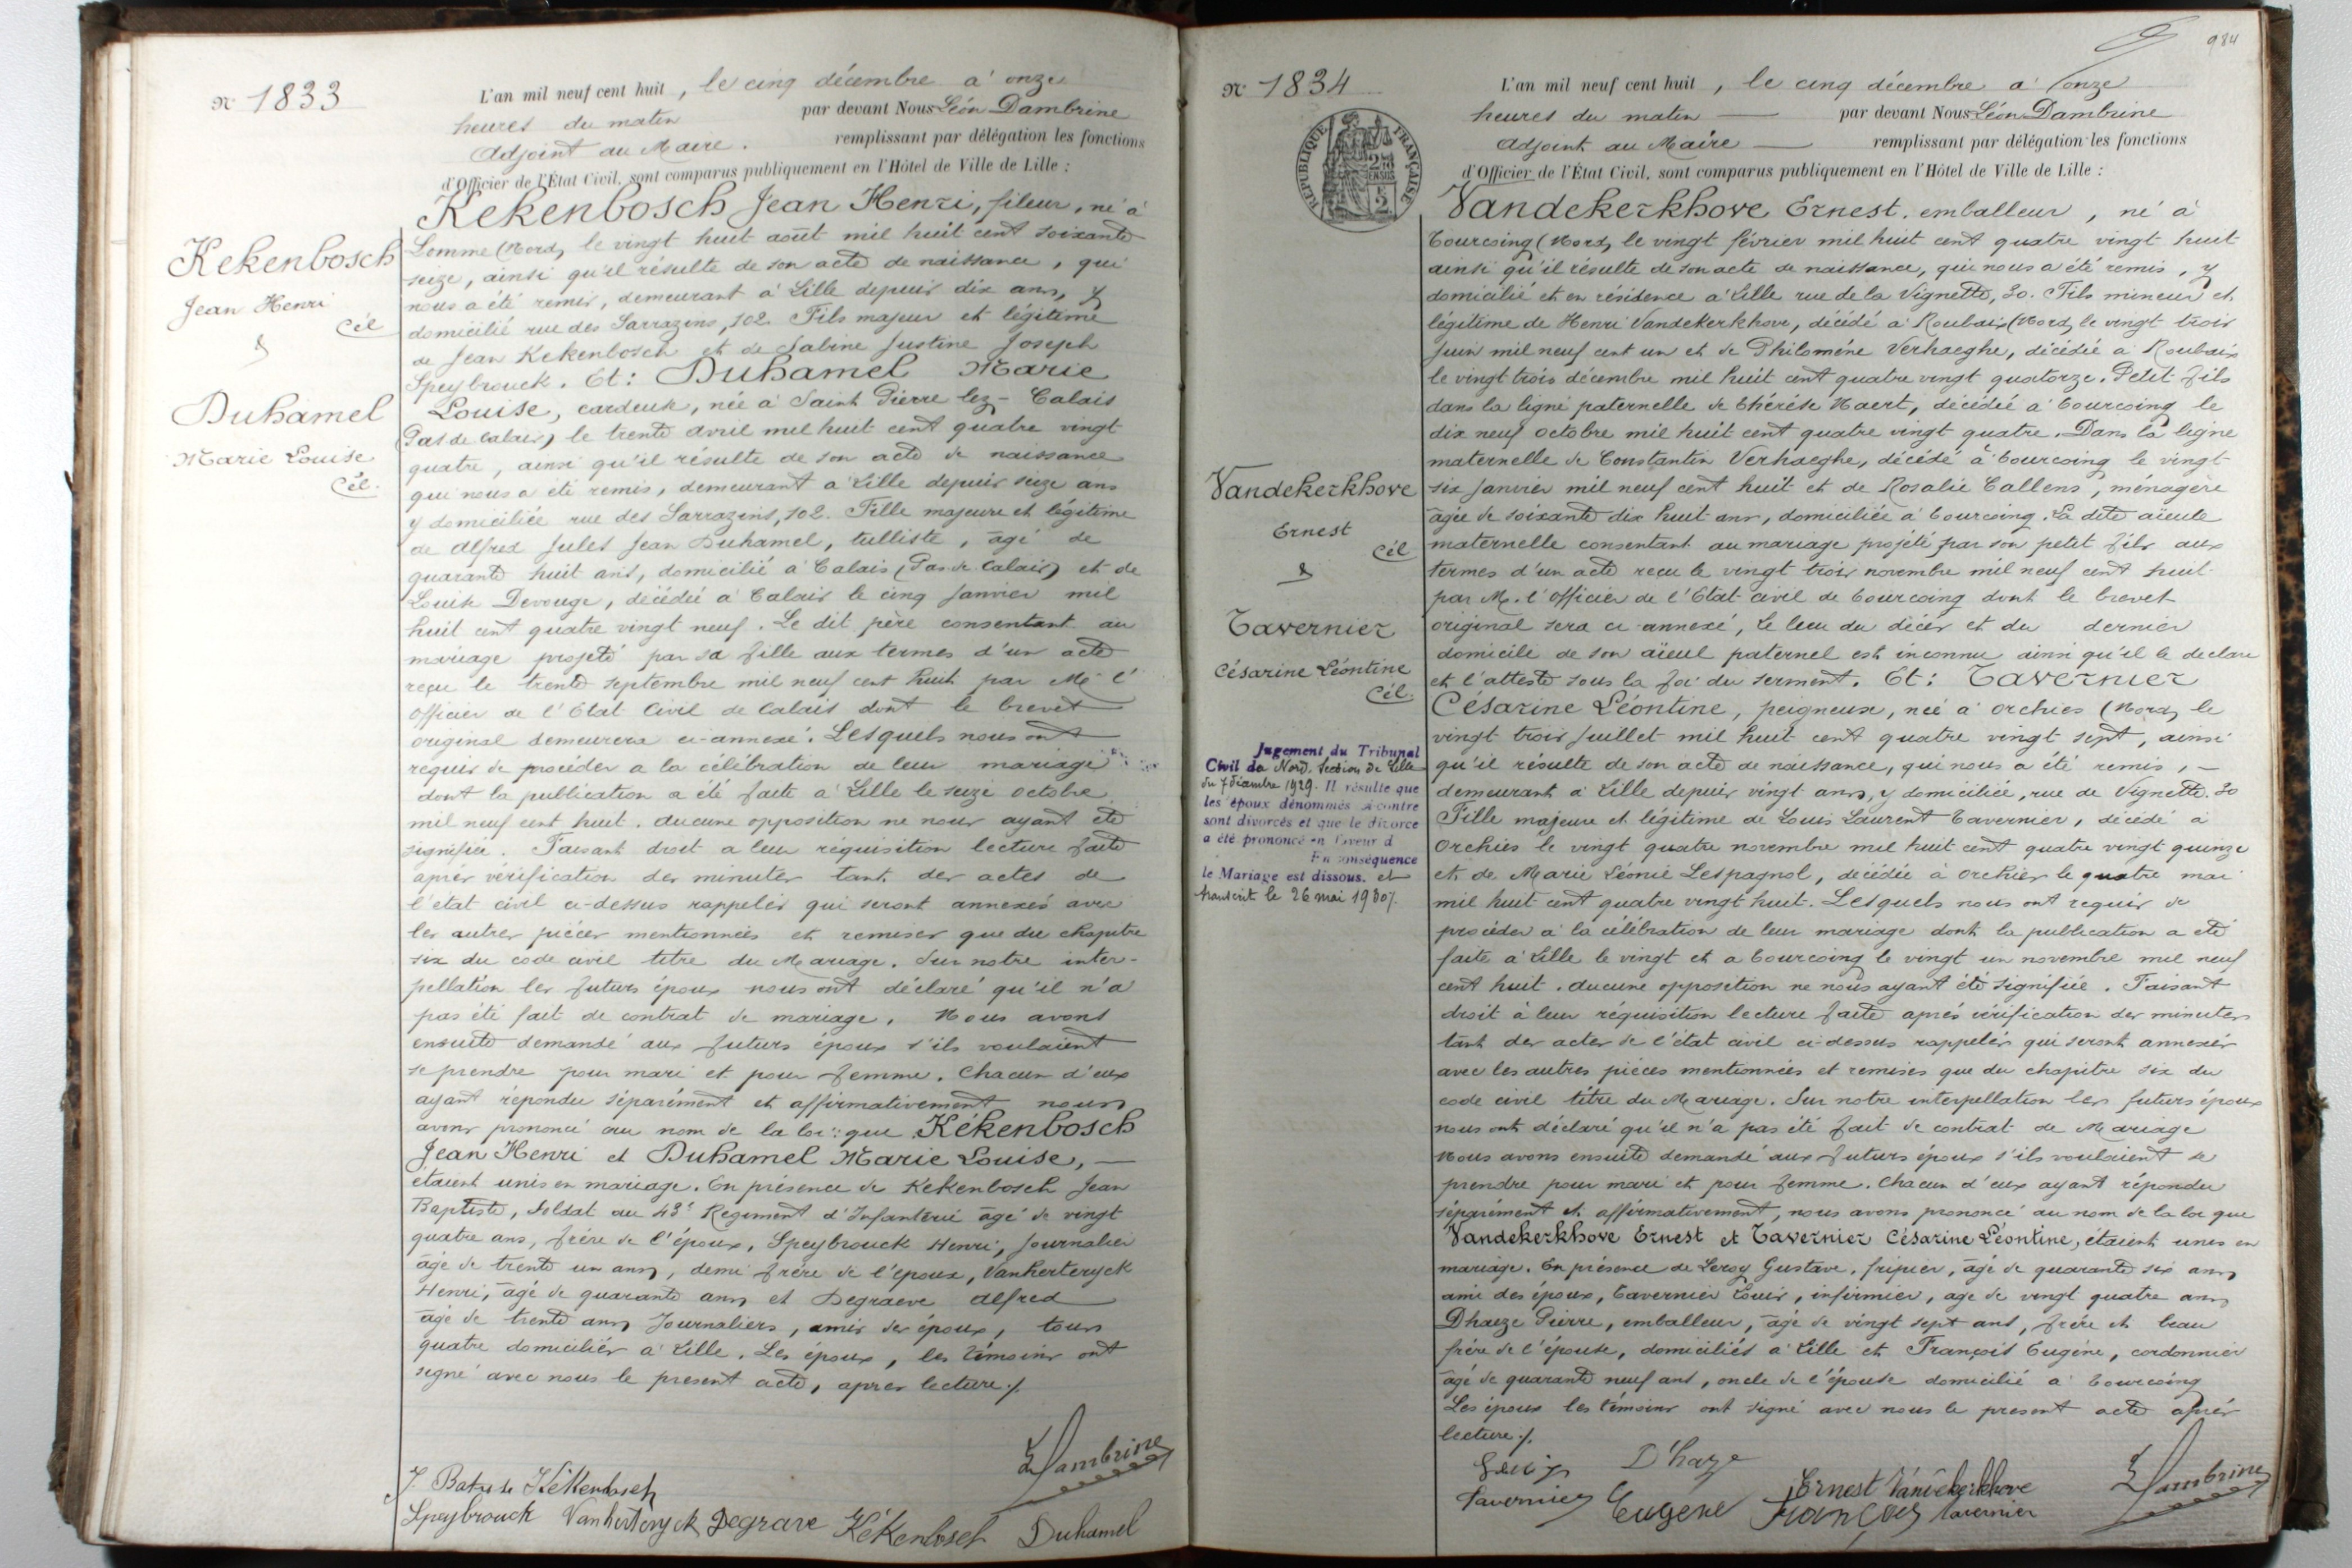 N° 1833
L'an mil neuf cent huit, le cinq décembre à onze
heures du matin par devant Nous Léon Dambrine
adjoint au Maire. remplissant par délégation les fonctions
d'Officier de l'État Civil, sont comparus publiquement en l'Hôtel de Ville de Lille :
Kekenbosch Jean Henri, fileur, né à
Lomme (Nord) le vingt huit août mil huit cent soixante
seize, ainsi qu'il résulte de son acte de naissance, qui
nous a été remis, demeurant à Lille depuis dix ans, y
domicilié rue des Sarrazins, 102. Fils majeur et légitime
de Jean Kekenbosch et de Sabine Justine Joseph
Speybrouck. Et : Duhamel Marie
Louise, cardeuse, née à Saint Pierre lez-Calais
(Pas de Calais) le trente avril mil huit cent quatre vingt
quatre, ainsi qu'il résulte de son acte de naissance
qui nous a été remis, demeurant à Lille depuis seize ans
y domiciliée rue des Sarrazins, 102. Fille majeure et légitime
de Alfred Jules Jean Duhamel, tulliste, âgé de
quarante huit ans, domicilié à Calais (Pas de Calais) et de
Louise Devouge, décédée à Calais le cinq janvier mil
huit cent quatre vingt neuf. Le dit père consentant au
mariage projeté par sa fille aux termes d'un acte
reçu le trente septembre mil neuf cent huit par Mr l'
officier de l'Etat Civil de Calais dont le brevet
original demeurera ci-annexé. Lesquels nous ont
requis de procéder a la célébration de leur mariage
dont la publication a été faite à Lille le seize octobre
mil neuf cent huit. aucune opposition ne nous ayant été
signifiée. Faisant droit a leur réquisition lecture faite
après vérification des minutes tant des actes de
l'état civil ci-dessus rappelés qui seront annexés avec
les autres pièces mentionnées et remises que du chapitre
six du code civil titre du Mariage. Sur notre inter-
pellation les futurs époux nous ont déclaré qu'il n'a
pas été fait de contrat de mariage. Nous avons
ensuite demandé aux futurs époux s'ils voulaient
se prendre pour mari et pour femme. Chacun d'eux
ayant répondu séparément et affirmativement nous
avons prononcé au nom de la loi : que Kékenbosch
Jean Henri et Duhamel Marie Louise, —
étaient unis en mariage. En présence de Kekenbosch Jean
Baptiste, soldat au 43e Régiment d'Infanterie âgé de vingt
quatre ans, frère de l'époux, Speybrouck Henri, journalier
âgé de trente un ans, demi frère de l'époux, Vanherteryck
Henri, âgé de quarante ans et Degraeve Alfred
âgé de trente ans journaliers, amis des époux, tous
quatre domiciliés à Lille. Les époux, les témoins ont
signé avec nous le présent acte, après lecture ./.
Kekenbosch
Jean Henri
Cél
&
Duhamel
Marie Louise
Cél.
LDambrine
J. Batiste Kékenbosch
Speybrouck Vanherteryck Degrave Kékenbosch Duhamel
984
N° 1834
L'an mil neuf cent huit, le cinq décembre à onze
heures du matin — par devant Nous Léon Dambrine
adjoint au Maire — remplissant par délégation les fonctions
d'Officier de l'État Civil, sont comparus publiquement en l'Hôtel de Ville de Lille :
RÉPUBLIQUE FRANÇAISE
Vandekerkhove Ernest, emballeur, né à
Tourcoing (Nord) le vingt février mil huit cent quatre vingt huit
ainsi qu'il résulte de son acte de naissance, qui nous a été remis, y
domicilié et en résidence à Lille rue de la Vignette, 30. Fils mineur et
légitime de Henri Vandekerkhove, décédé à Roubaix (Nord) le vingt trois
juin mil neuf cent un et de Philomène Verhaeghe, décédée à Roubaix
le vingt trois décembre mil huit cent quatre vingt quatorze. Petit fils
dans la ligne paternelle de Thérèse Naert, décédée à Tourcoing le
dix neuf octobre mil huit cent quatre vingt quatre. Dans la ligne
maternelle de Constantin Verhaeghe, décédé à Tourcoing le vingt
six janvier mil neuf cent huit et de Rosalie Callens, ménagère
âgée de soixante dix huit ans, domiciliée à Tourcoing. La dite aïeule
maternelle consentant au mariage projeté par son petit fils aux
termes d'un acte reçu le vingt trois novembre mil neuf cent huit
par M. l'officier de l'Etat civil de Tourcoing dont le brevet
original sera ci-annexé, le lieu du décès et du dernier
domicile de son aïeul paternel est inconnu ainsi qu'il le déclare
et l'atteste sous la foi du serment. Et : Tavernier
Césarine Léontine, peigneuse, née à Orchies (Nord) le
vingt trois juillet mil huit cent quatre vingt sept, ainsi
qu'il résulte de son acte de naissance, qui nous a été remis, —
demeurant à Lille depuis vingt ans, y domiciliée, rue de Vignette. 30
Fille majeure et légitime de Louis Laurent Tavernier, décédé à
Orchies le vingt quatre novembre mil huit cent quatre vingt quinze
et de Marie Léonie Lespagnol, décédée à Orchies le quatre mai
mil huit cent quatre vingt huit. Lesquels nous ont requis de
procéder à la célébration de leur mariage dont la publication a été
faite à Lille le vingt et a Tourcoing le vingt un novembre mil neuf
cent huit. aucune opposition ne nous ayant été signifiée. Faisant
droit à leur réquisition lecture faite après vérification des minutes
tant des actes de l'état civil ci-dessus rappelés qui seront annexés
avec les autres pièces mentionnées et remises que du chapitre six du
code civil titre du Mariage. Sur notre interpellation les futurs époux
nous ont déclaré qu'il n'a pas été fait de contrat de Mariage
Nous avons ensuite demandé aux futurs époux s'ils voulaient se
prendre pour mari et pour femme. Chacun d'eux ayant répondu
séparément et affirmativement, nous avons prononcé au nom de la loi que
Vandekerkhove Ernest et Tavernier Césarine Léontine, étaient unis en
mariage. En présence de Leroy Gustave, fripier, âgé de quarante six ans
ami des époux, Tavernier Louis, infirmier, âgé de vingt quatre ans
Dhaeze Pierre, emballeur, âgé de vingt sept ans, frère et beau
frère de l'épouse, domiciliés à Lille et François Eugène, cordonnier
âgé de quarante neuf ans, oncle de l'épouse domicilié à Tourcoing
Les époux les témoins ont signé avec nous le présent acte après
lecture ./.
Vandekerkhove
Ernest
Cél
&
Tavernier
Césarine Léontine
Cél.
Jugement du Tribunal
Civil du Nord, Section de Lille
du 7 décembre 1929. Il résulte que
les époux dénommés ci-contre
sont divorcés et que le divorce
a été prononcé en faveur d
En conséquence
le Mariage est dissous. et
transcrit le 26 mai 1930 ./.
D'haze
Tavernier Eugène François Ernest Vandekerkhove Tavernier
LDambrine